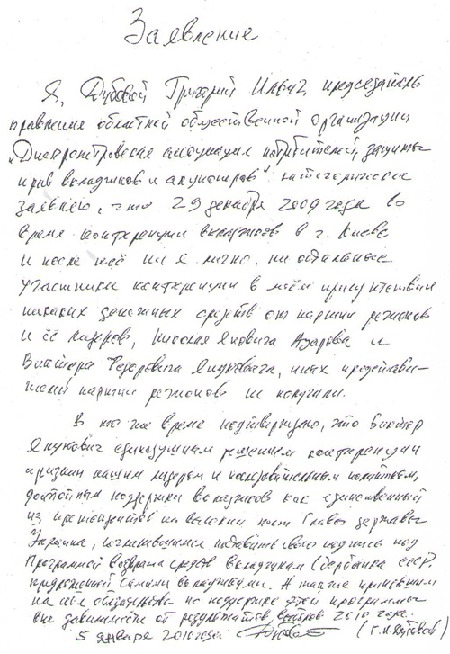 Заявление
Я, Дубовой Григорий Ильич, председатель
правления областной общественной организации
"Днепропетровская ассоциация потребителей, защиты
прав вкладчиков и акционеров" категорически
заявляю, что 29 декабря 2009 года во
время конференции вкладчиков в г. Киеве
и после неё ни я лично, ни остальные
участники конференции в моём присутствии
никаких денежных средств от партии регионов
и её лидеров, Николая Яновича Азарова и
Виктора Федоровича Януковича, иных представи-
телей партии регионов не получали.
В то же время подтверждаю, что Виктор
Янукович единодушным решением конференции
признан нашим лидером и последовательным политиком,
достойным поддержки вкладчиков как единственный
из претендентов на высокий пост Главы державы
Украина, согласившимся поставить свою подпись под
Программой возврата средств вкладчикам Сбербанка СССР,
предложенной самими вкладчиками. А также принявшим
на себя обязательства по поддержке этой программы
вне зависимости от результатов выборов 2010 года.
5 января 2010 года (Г.И. Дубовой)